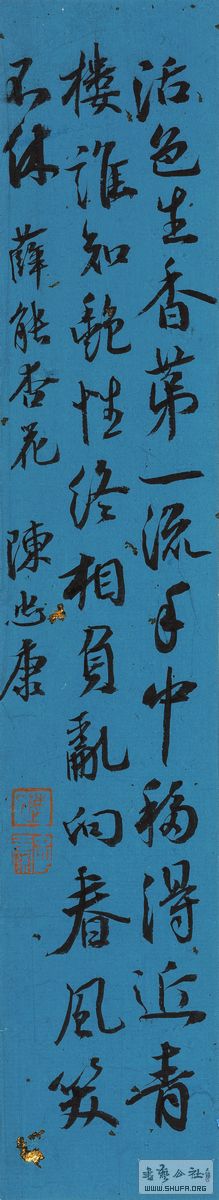 活色生香第一流手中移得近青
楼谁知艳性终相负乱向春风笑
不休 薛能杏花 陈忠康
書藝公社
WWW.SHUFA.ORG